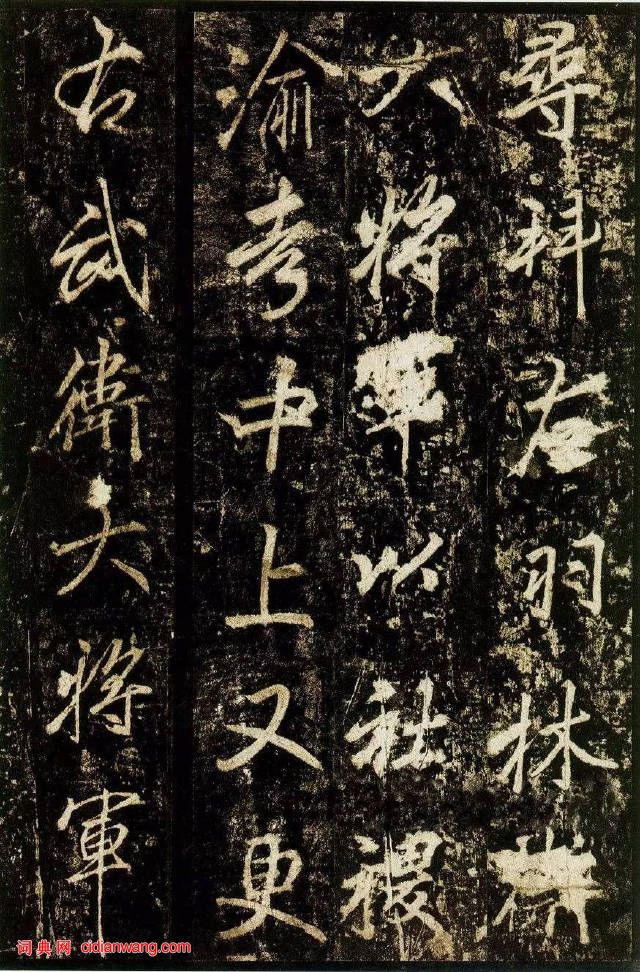 尋拜右羽林衛
大將軍以社稷
渝考中上又更
右武衛大將軍
词典网 cidianwang.com